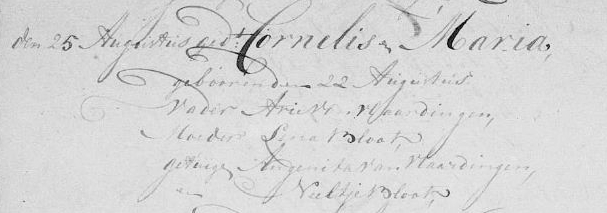 den 25 Augustus gedt Cornelis en Maria,
gebooren den 22 Augustus
vader Arie van vlaardingen,
Moeder Lena Bloot,
getuige Angenita van vlaardingen,
en Neeltje Bloot,